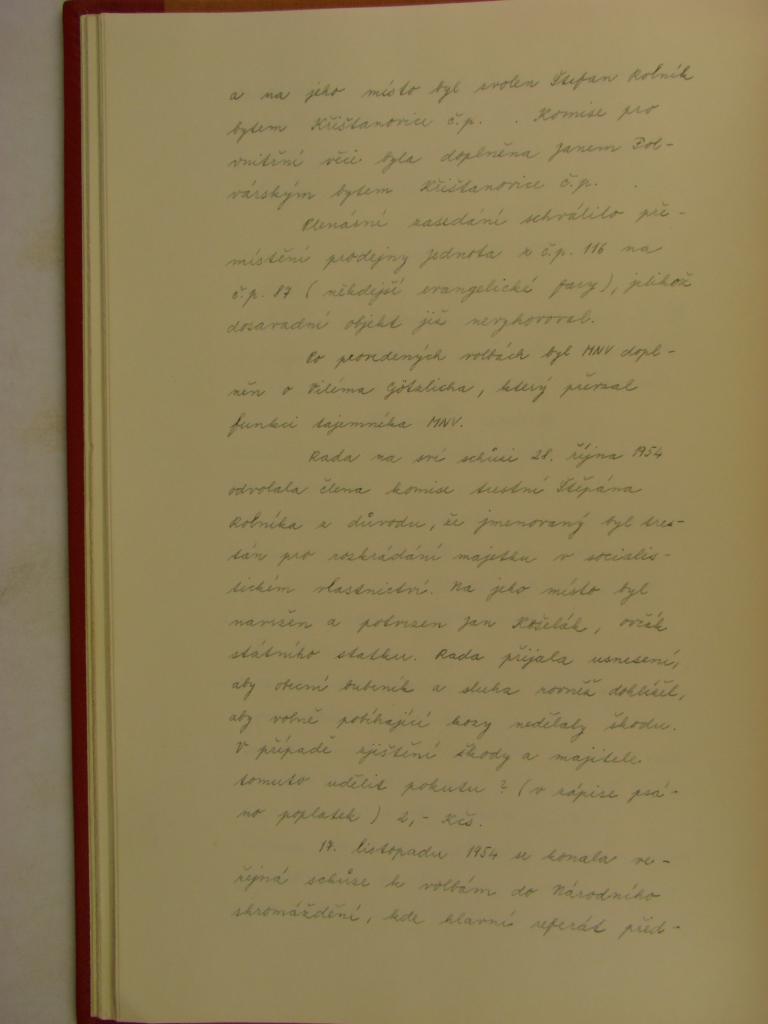 a na jeho místo byl zvolen Štefan Rolník
bytem Křišťanovice č.p. . Komise pro
vnitřní věci byla doplněna Janem Fol-
várským bytem Křišťanovice č.p. .
Plenární zasedání schválilo pře-
místění prodejny Jednota z č.p. 116 na
č.p. 87 (někdejší evangelické fary), jelikož
dosavadní objekt již nevyhovoval.
Po provedených volbách byl MNV dopl-
něn o Viléma Götzlicha, který převzal
funkci tajemníka MNV.
Rada na své schůzi 28. října 1954
odvolala člena komise trestní Štěpána
Rolníka z důvodu, že jmenovaný byl tres-
tán pro rozkrádání majetku v socialis-
tickém vlastnictví. Na jeho místo byl
navržen a potvrzen Jan Košelák, ovčák
státního statku. Rada přijala usnesení,
aby obecní bubeník a sluha rovněž dohlížel,
aby volně pobíhající kozy nedělaly škodu.
V případě zjištění škody a majitele
tomuto udělit pokutu ? (v zápise psá-
no poplatek) 2,- Kčs.
17. listopadu 1954 se konala ve-
řejná schůze k volbám do Národního
shromáždění, kde hlavní referát před-